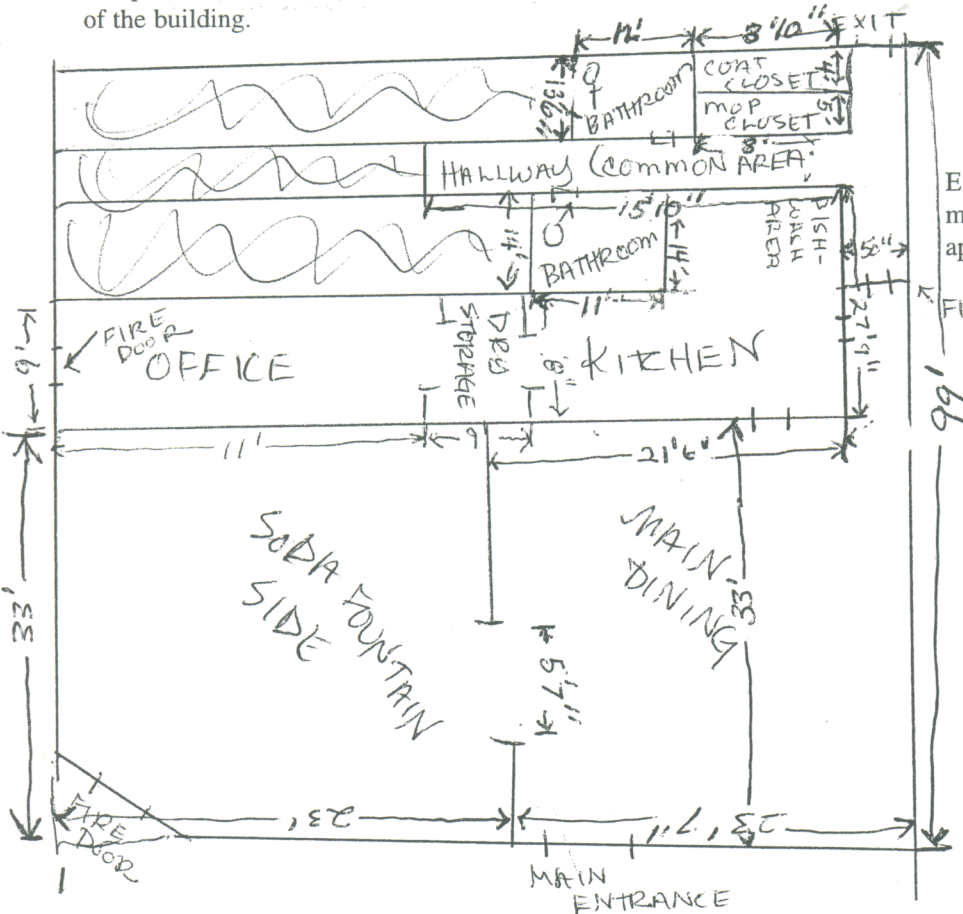 of the building.
12'
8'10"
EXIT
13'6"
BATHROOM
COAT
CLOSET
4'
MOP
CLOSET
5'
8'
HALLWAY (COMMON AREA)
15'10"
14'
BATHROOM
14'
DISH-
WASH
AREA
11'
E
m
ap
FI
FIRE
DOOR
OFFICE
STORAGE
8"
KITCHEN
27'9"
66'
9'
11'
6
33'
SODA FOUNTAIN
SIDE
MAIN
DINING
33'
5'7"
FIRE
DOOR
23'
23'7"
MAIN
ENTRANCE